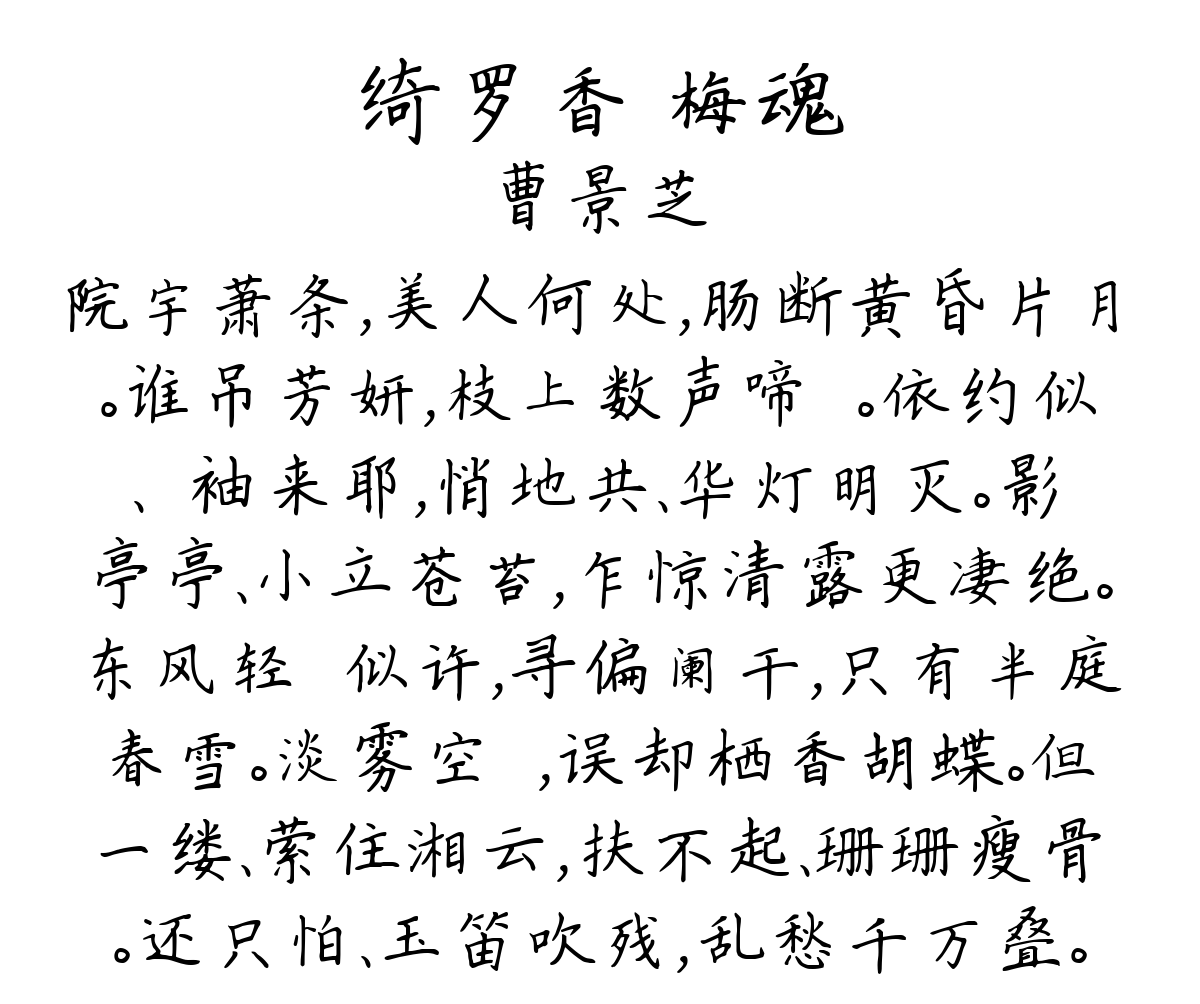 绮罗香 梅魂
曹景芝
院宇萧条,美人何处,肠断黄昏片月
。谁吊芳妍,枝上数声啼 。依约似
、 袖来耶,悄地共、华灯明灭。影
亭亭、小立苍苔,乍惊清露更凄绝。
东风轻 似许,寻偏阑干,只有半庭
春雪。淡雾空 ,误却栖香胡蝶。但
一缕、萦住湘云,扶不起、珊珊瘦骨
。还只怕、玉笛吹残,乱愁千万叠。